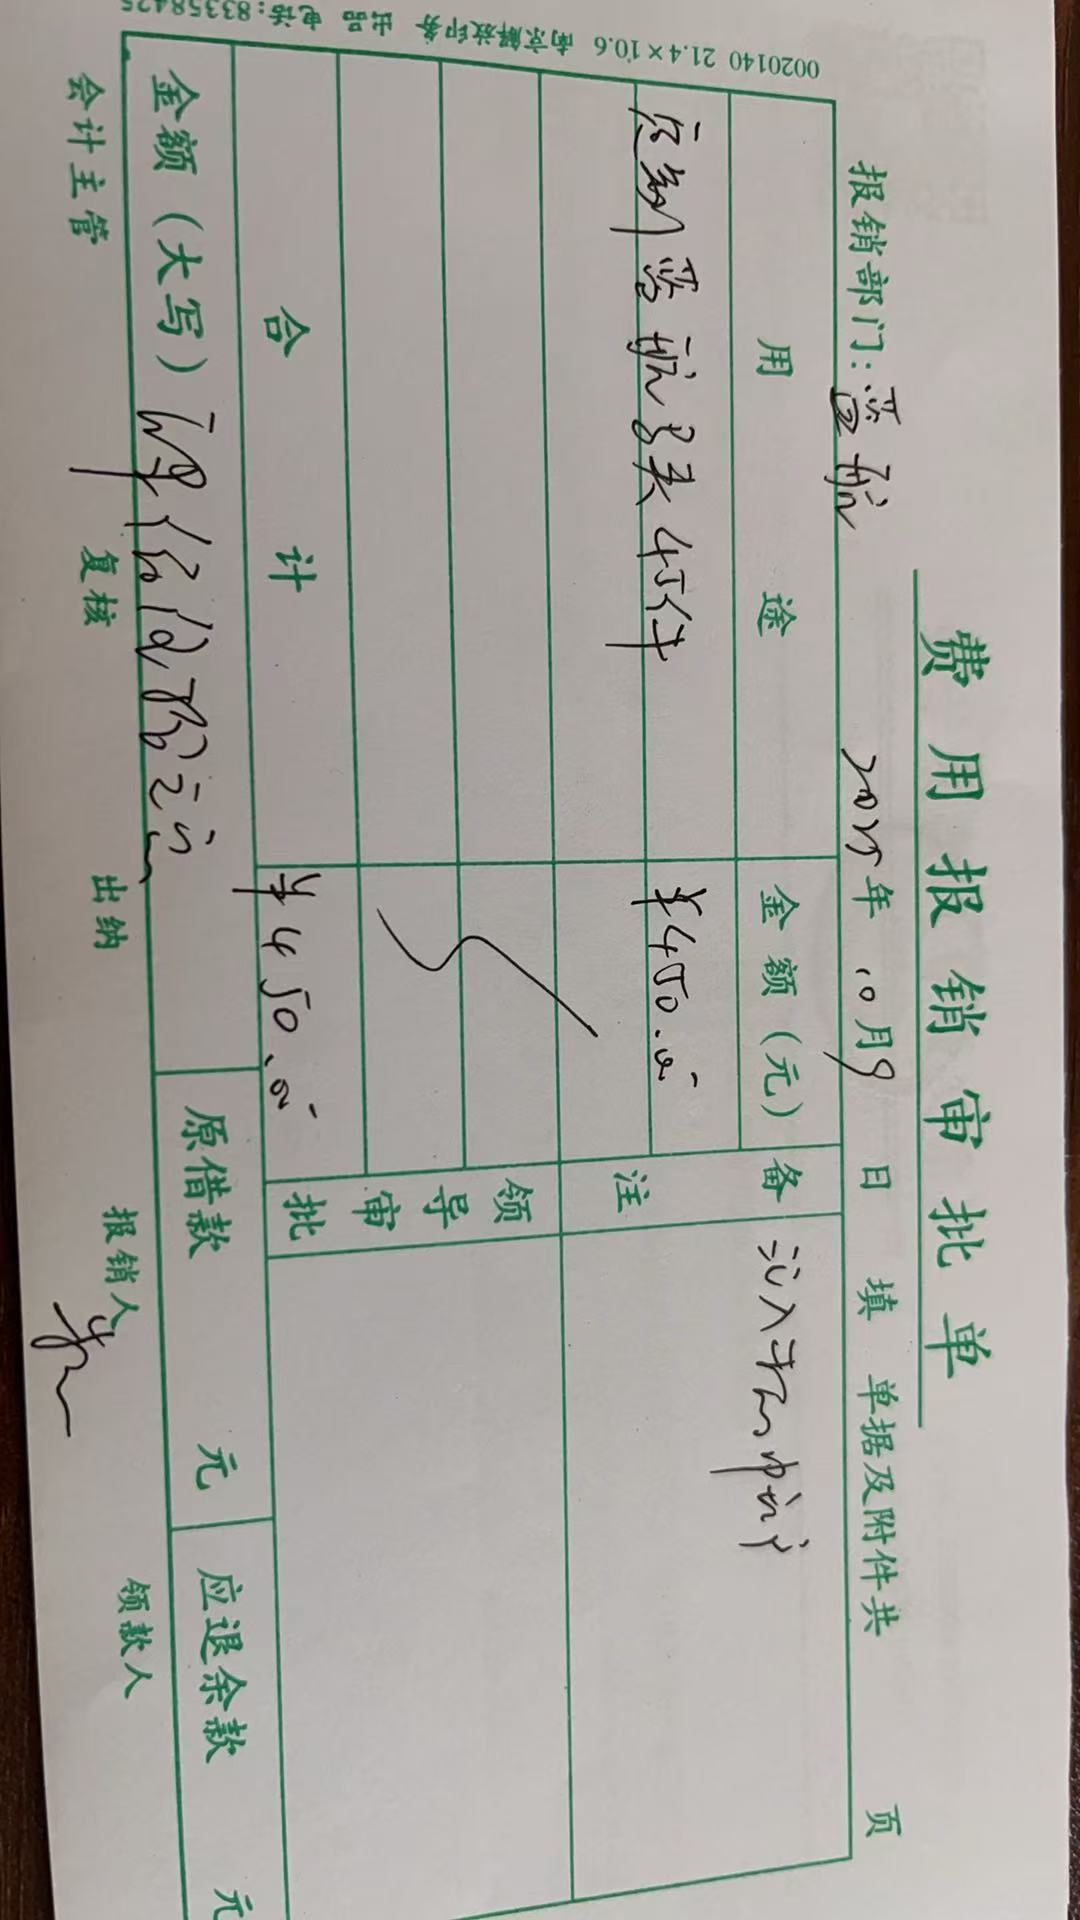 费用报销审批单
报销部门：蓝航 2025年10月9日填 单据及附件共 页
用途 金额（元） 备注
蓝航 45件 ¥450.00
合计 ¥450.00
领导审批
金额（大写） 肆佰伍拾元 原借款 元 应退余款 元
会计主管 复核 出纳 报销人 领款人
0020140 21.4×10.6 南京解放印务 出品 电话:83358425